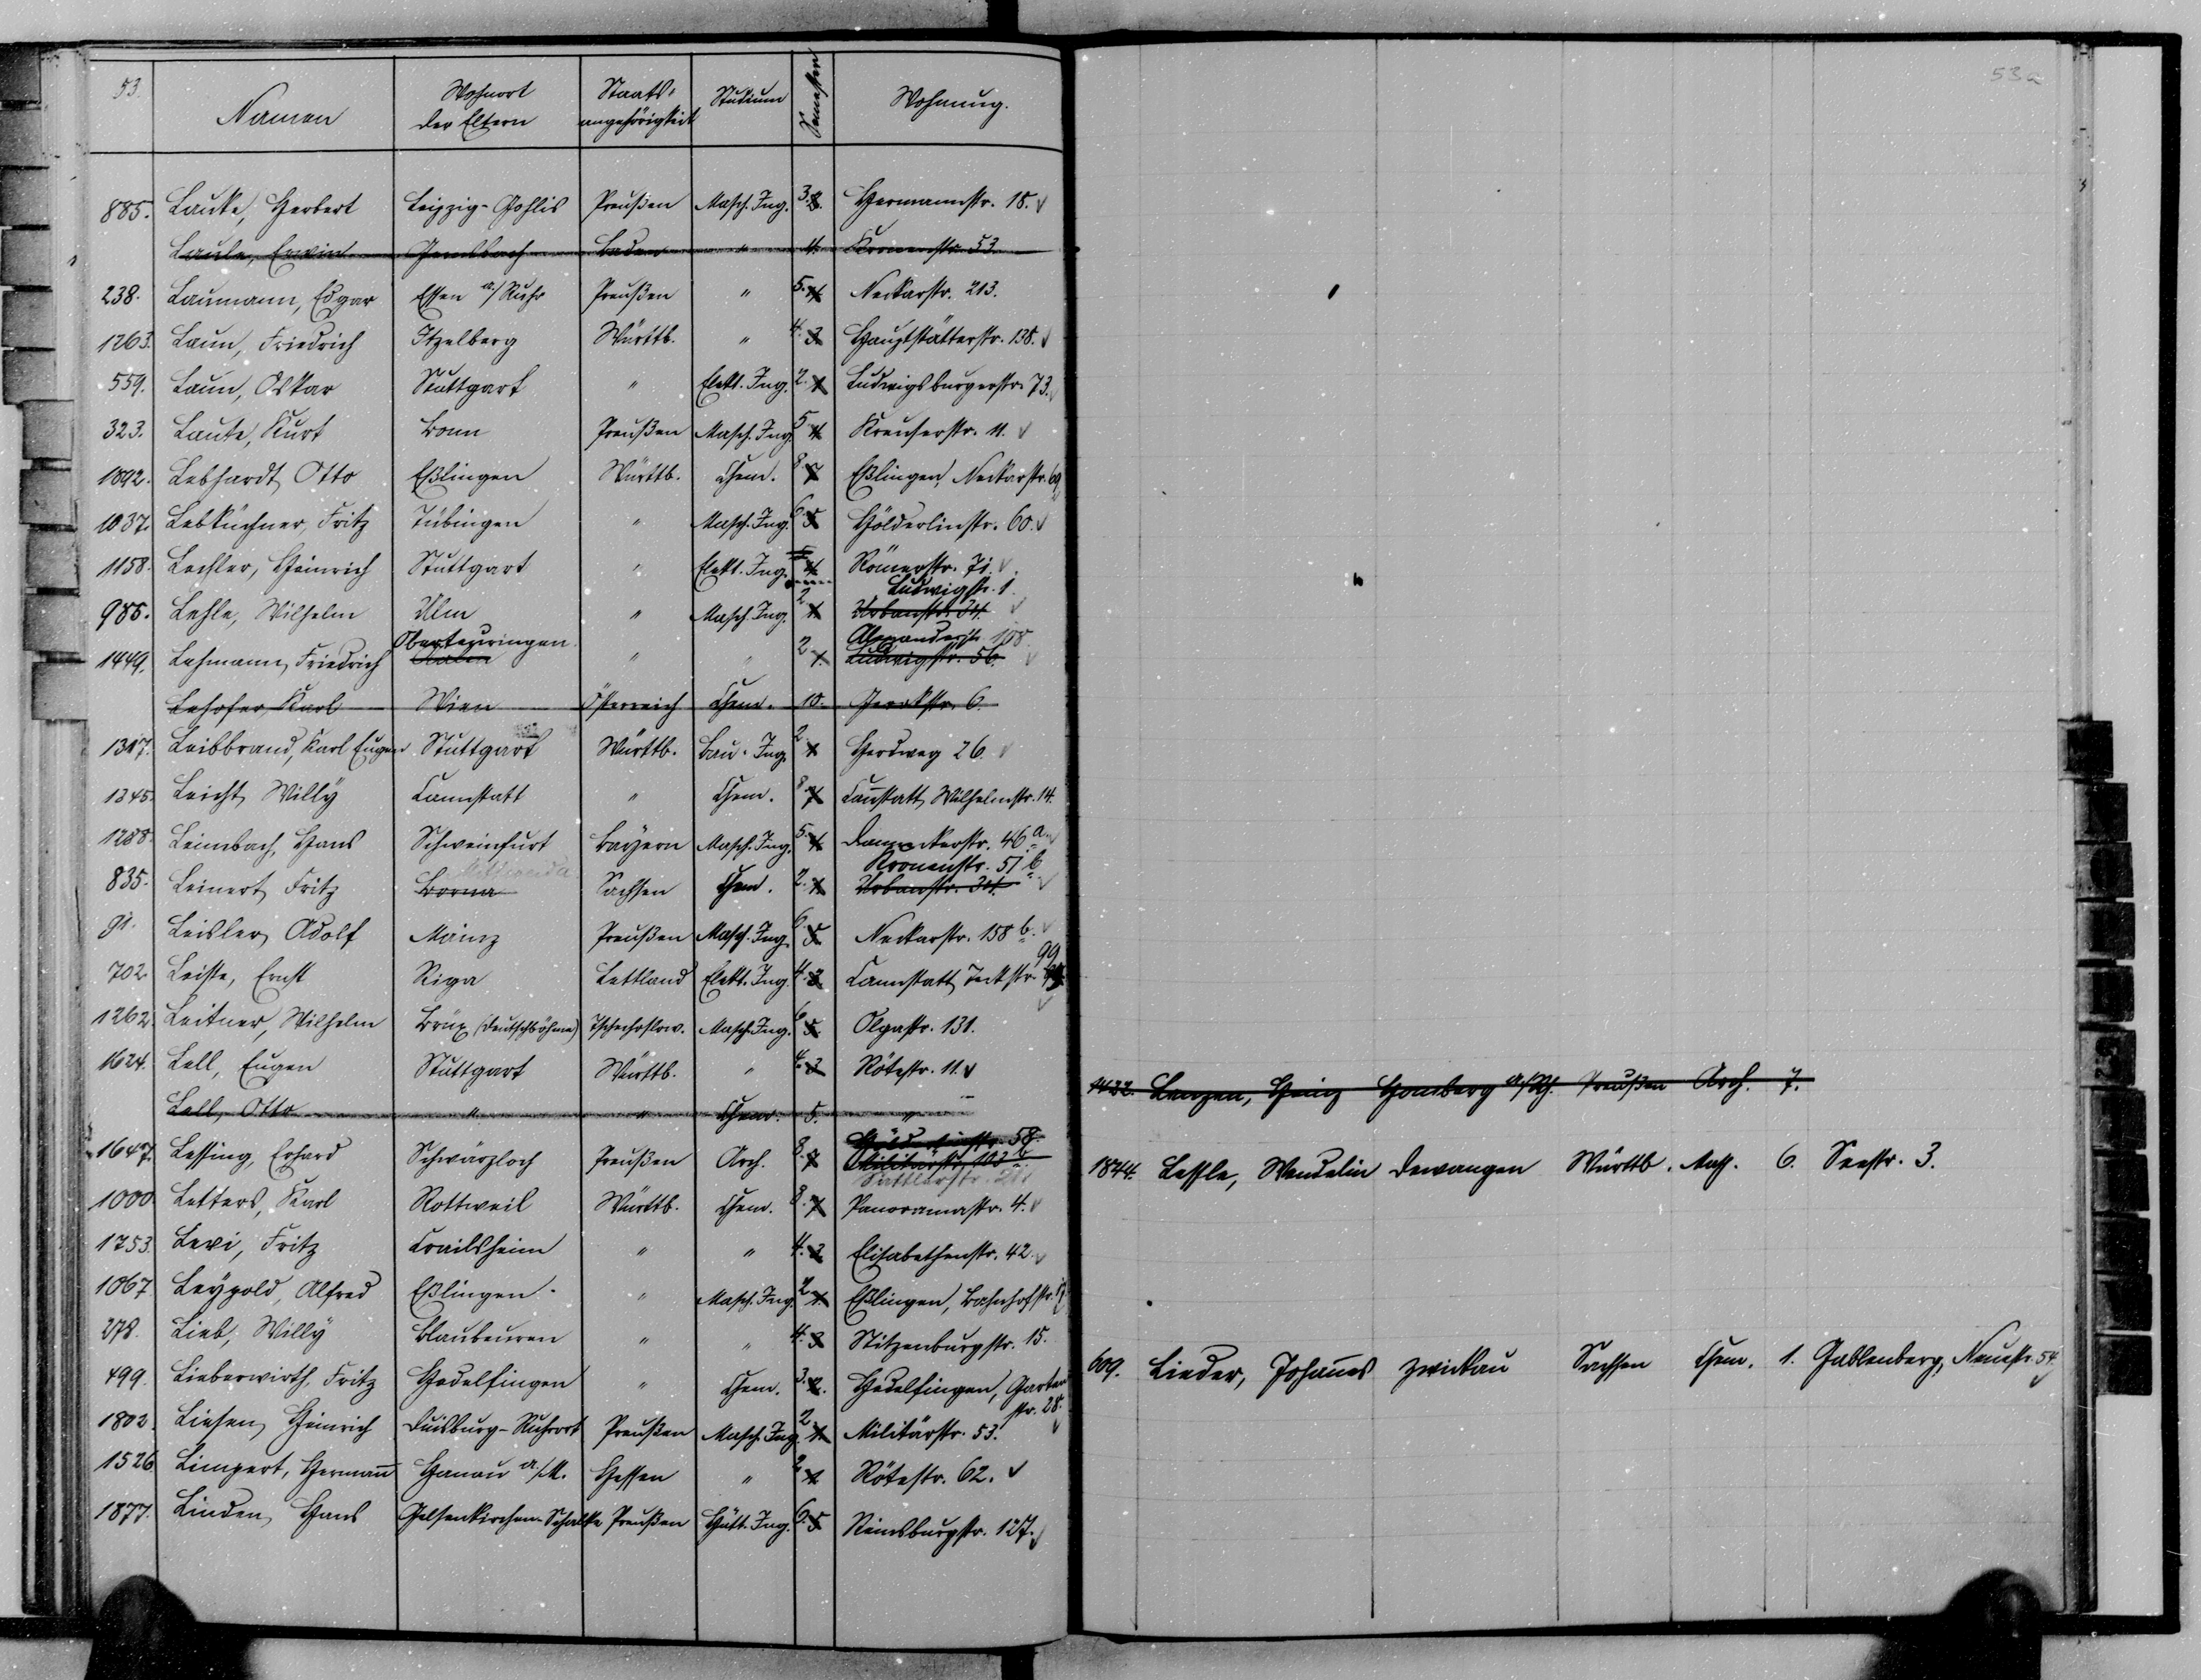 53.
Namen Wohnort der Eltern Staats-angehörigkeit Studium Semester Wohnung.
885. Lauke, Herbert Leipzig-Gohlis Preußen Masch. Ing. 3. 2. Hermannstr. 18. ✓
Laule, Erwin Baden " 4. Kronenstr. 53.
238. Laumann, Edgar Essen a./Ruhr Preußen " 5. 4. Neckarstr. 213.
1263. Laun, Friedrich Itzelberg Württb. " 4. 3. Hauptstätterstr. 138. ✓
559. Laun, Oskar Stuttgart " Elekt. Ing. 2. 1. Ludwigsburgerstr. 73. ✓
323. Laute, Kurt Bonn Preußen Masch. Ing. 5. 4. Kreuserstr. 11. ✓
1092. Lebhardt, Otto Eßlingen Württb. Chem. 8. 7. Eßlingen, Neckarstr. 69
1037. Lebküchner, Fritz Tübingen " Masch. Ing. 6. 5. Hölderlinstr. 60. ✓
1158. Lechler, Heinrich Stuttgart " Elekt. Ing. 4. Römerstr. 71. ✓
Ludwigstr. 1.
985. Lehle, Wilhelm Ulm " Masch. Ing. 2. 1. Urbanstr. 34. ✓
Oberteuringen Alexanderstr. 108
1449. Lehmann, Friedrich Aalen " " 2. 1. Ludwigstr. 56. ✓
Lehofer, Karl Wien Österreich Chem. 10. Gerokstr. 6.
1317. Leibbrand, Karl Eugen Stuttgart Württb. Bau-Ing. 2. 1. Herdweg 26. ✓
1345. Leicht, Willy Cannstatt " Chem. 8. 7. Cannstatt, Wilhelmstr. 14.
1288. Leimbach, Hans Schweinfurt Bayern Masch. Ing. 5. 4. Danneckerstr. 46 a. ✓
Mittweida Kronenstr. 51 b
835. Leinert, Fritz Borna Sachsen Chem. 2. 1. Urbanstr. 34. ✓
91. Leisler, Adolf Mainz Preußen Masch. Ing. 6. 5. Neckarstr. 158 b. ✓
99
702. Leiste, Ernst Riga Lettland Elekt. Ing. 4. 3. Cannstatt, Teckstr. ✓
1262. Leitner, Wilhelm Brüx (Deutschböhme) Tschechoslow. Masch. Ing. 6. 5. Olgastr. 131.
1624. Lell, Eugen Stuttgart Württb. " 4. 3. Rötestr. 11. ✓
Lell, Otto " " Chem. 5. "
Hölderlinstr. 58.
1647. Lessing, Erhard Schwärzloch Preußen Arch. 8. 7. Militärstr. 103 b
Sattlerstr.
1000. Letters, Karl Rottweil Württb. Chem. 8. 7. Panoramastr. 4. ✓
1753. Levi, Fritz Crailsheim " " 4. 3. Elisabethenstr. 42. ✓
1067. Leypold, Alfred Eßlingen " Masch. Ing. 2. 1. Eßlingen, Bahnhofstr.
278. Lieb, Willy Blaubeuren " " 4. 3. Stitzenburgstr. 15.
499. Lieberwirth, Fritz Hedelfingen " Chem. 3. 2. Hedelfingen, Garten
str. 28. ✓
1802. Liesen, Heinrich Duisburg-Ruhrort Preußen Masch. Ing. 2. 1. Militärstr. 53.
1526. Limpert, Hermann Hanau a./M. Hessen " 2. 1. Rötestr. 62. ✓
1877. Linden, Hans Gelsenkirchen-Schalke Preußen Hütt. Ing. 6. 5. Reinsburgstr. 127. ✓
53a
1432. Lenzen, Heinz Homberg a./Rh. Preußen Arch. 7.
1844. Lessle, Wendelin Dewangen Württb. Math. 6. Seestr. 3.
609. Lieder, Johannes Zwickau Sachsen Chem. 1. Gablenberg, Neuestr. 54. ✓